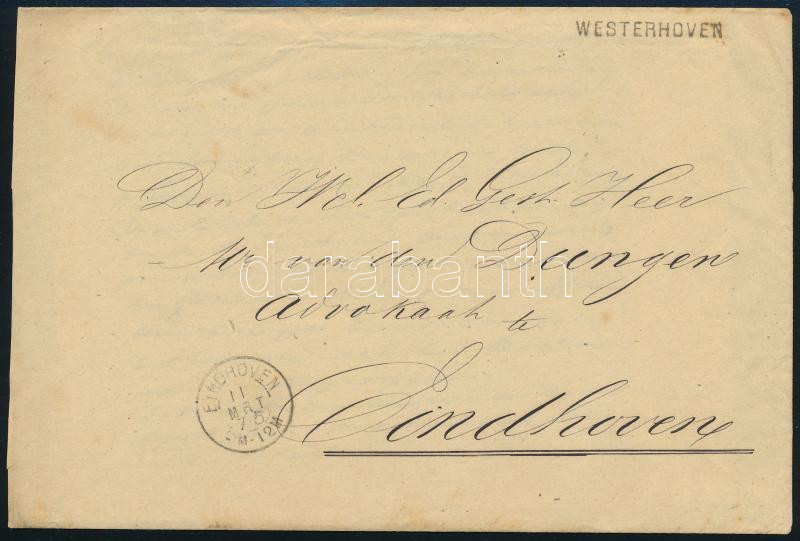 WESTERHOVEN
Den Wel. Ed. Gestr. Heer
Mr van den Dungen
advokaat te
Eindhoven
darabanth
EINDHOVEN
11
MRT
75
M-12M